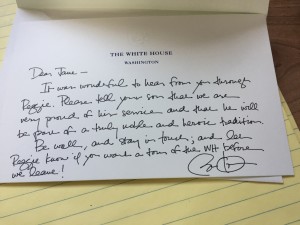 THE WHITE HOUSE
WASHINGTON
Dear Jane —
It was wonderful to hear from you through
Reggie. Please tell your son that we are
very proud of his service and that he will
be part of a truly noble and heroic tradition.
Be well, and stay in touch; and let
Reggie know if you want a tour of the WH before
we leave!